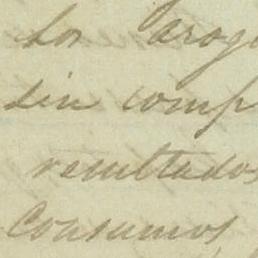 los arog
sin comp
resultados
Consumos,